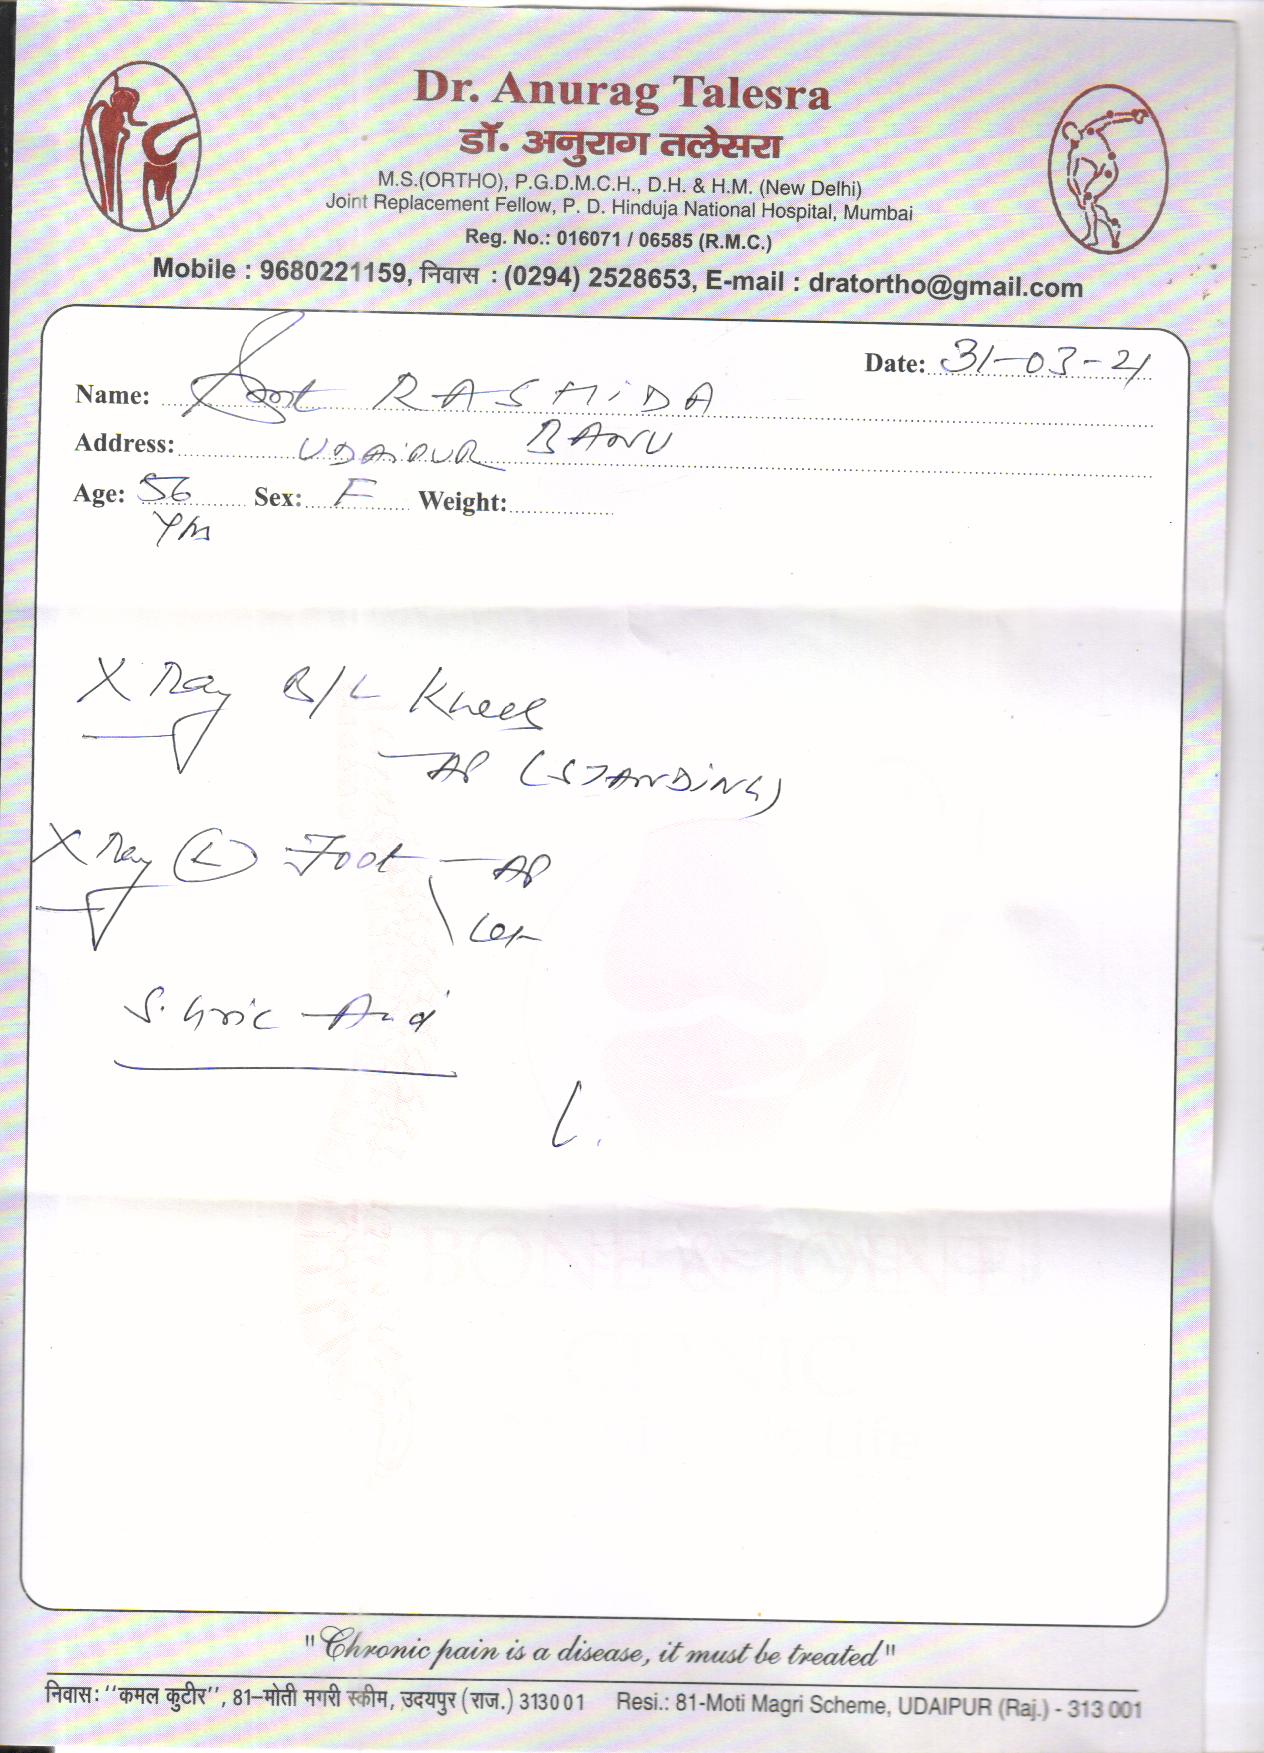 Dr. Anurag Talesra
डॉ. अनुराग तलेसरा
M.S.(ORTHO), P.G.D.M.C.H., D.H. & H.M. (New Delhi)
Joint Replacement Fellow, P. D. Hinduja National Hospital, Mumbai
Reg. No.: 016071 / 06585 (R.M.C.)
Mobile : 9680221159, निवास : (0294) 2528653, E-mail : dratortho@gmail.com
Date: 31-03-21
Name: Smt RASHiDA
BANU
Address: UDAiPUR
Age: 56 Sex: F Weight:
Yrs
X Ray B/L Knees
- AP (STANDiNG)
X Ray (L) Foot - AP
\ Lat
S. Uric Acid
"Chronic pain is a disease, it must be treated"
निवास: ''कमल कुटीर'', 81-मोती मगरी स्कीम, उदयपुर (राज.) 313001 Resi.: 81-Moti Magri Scheme, UDAIPUR (Raj.) - 313 001